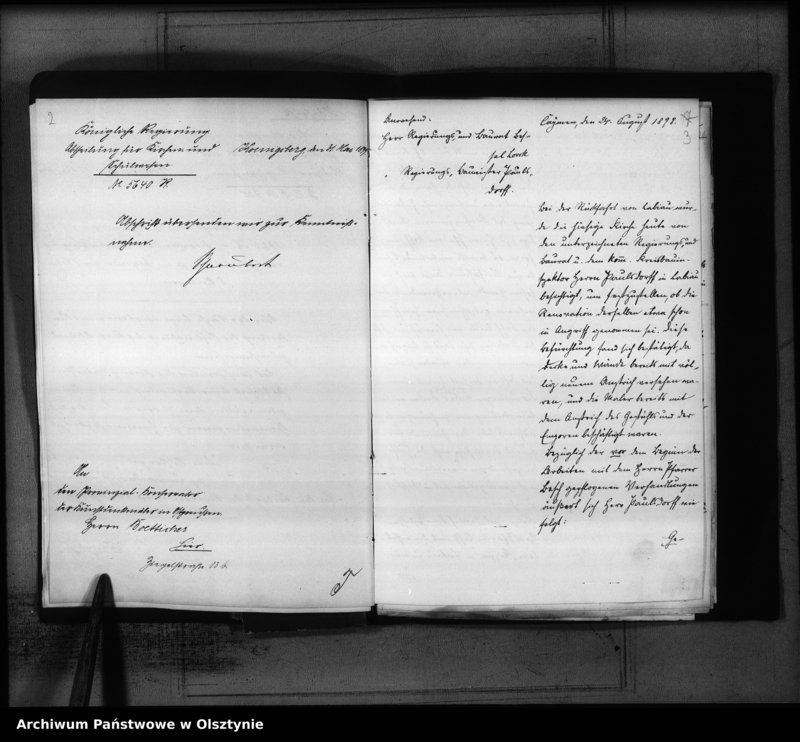 2
Königliche Regierung
Abtheilung für Kirchen und
Schulwesen
Nr. 5640
Koenigsberg, den
Abschrift übersenden wir zur Kenntniß-
nahme.
An
den Provinzial-Konservator
der Kunstdenkmäler in Ostpreußen
Herrn Boetticher
Hier.
3
Anwesend:
Herr Regierungs- und Baurat Bes-
sel Lorck
" Regierungs-Baumeister Pauls-
dorff.
Caymen, den 25. August 1898.
Bei der Rückfahrt von Labiau wur-
de die hiesige Kirche heute von
den unterzeichneten Regierungs- und
Baurat u. dem kom. Kreisbauin-
spektor Herrn Paulsdorff in Labiau
besichtigt, um festzustellen, ob die
Renovation derselben etwa schon
in Angriff genommen sei. Diese
Befürchtung fand sich bestätigt, da
Decke und Wände bereits mit völ-
lig neuem Anstrich versehen wa-
ren, und die Maler bereits mit
dem Anstrich des Gestühls und der
Emporen beschäftigt waren.
Bezüglich der vor dem Beginn der
Arbeiten mit dem Herrn Pfarrer
gepflogenen Verhandlungen
äußert sich Herr Paulsdorff wie
folgt:
Ge-
Archiwum Państwowe w Olsztynie